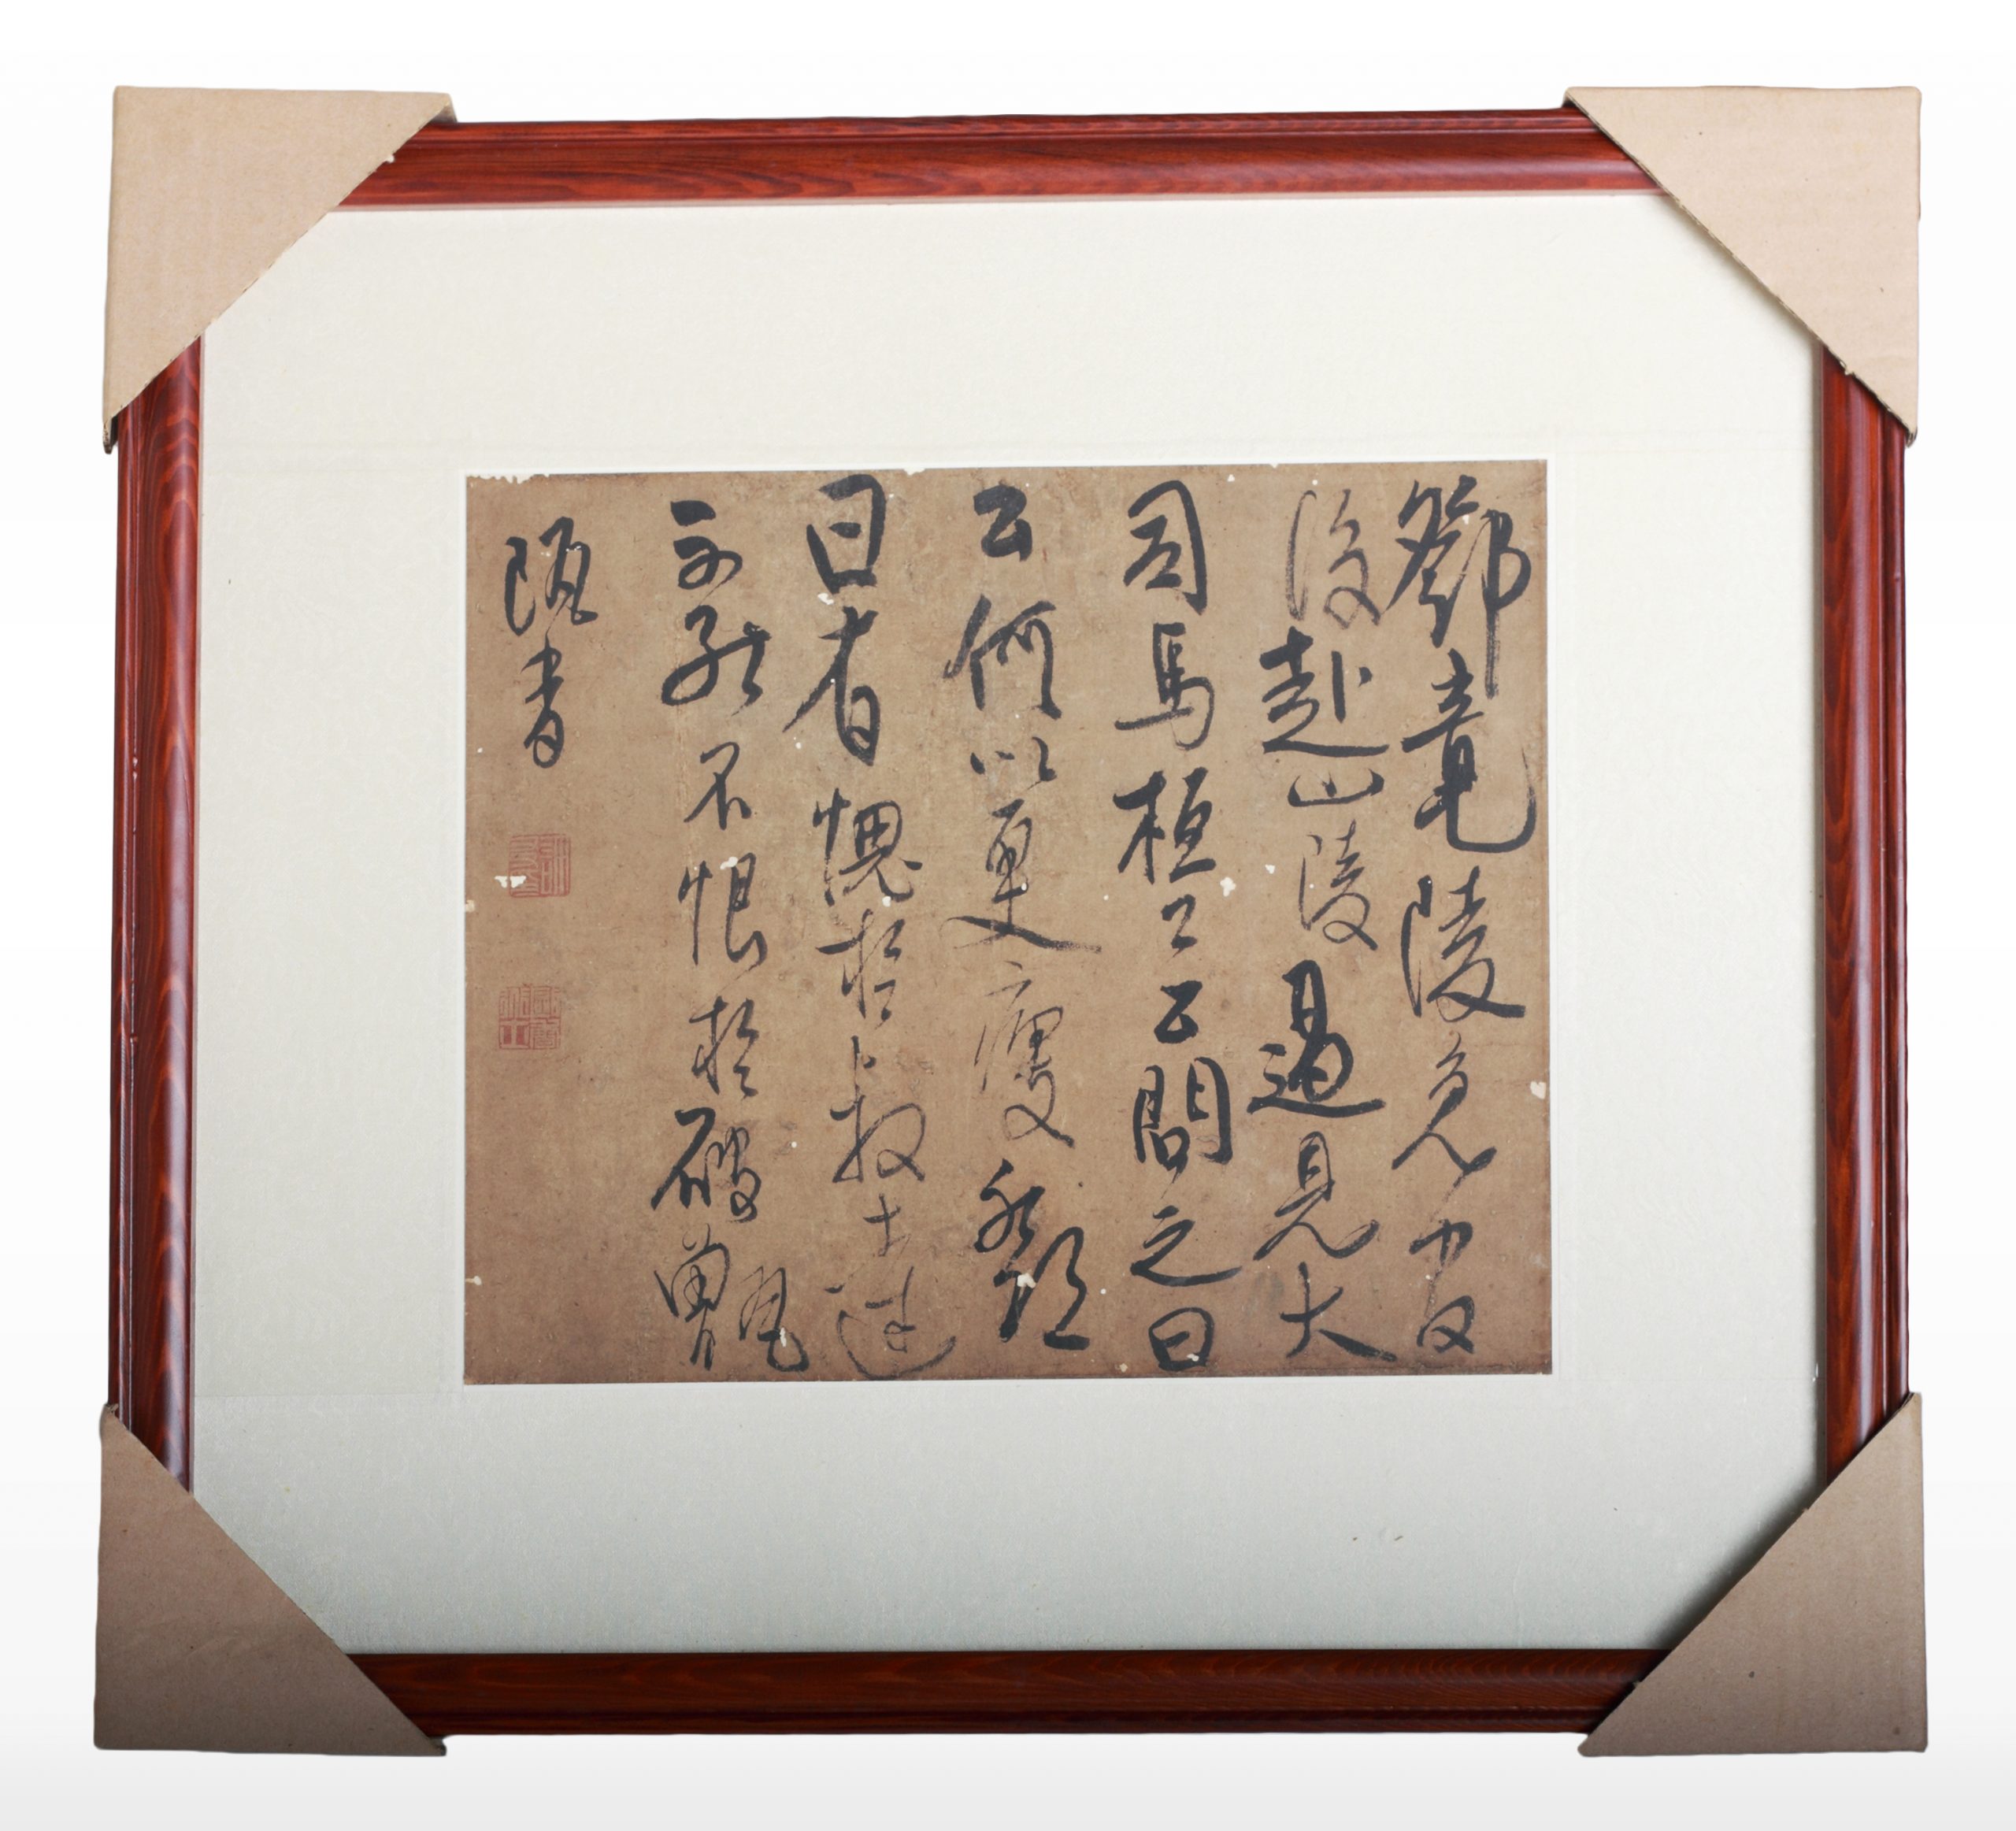 鄧竟陵免官
後赴山陵過見大
司馬桓公公問之曰
公何以更瘦鄧
曰有愧於叔達
不能不恨於破甑
書